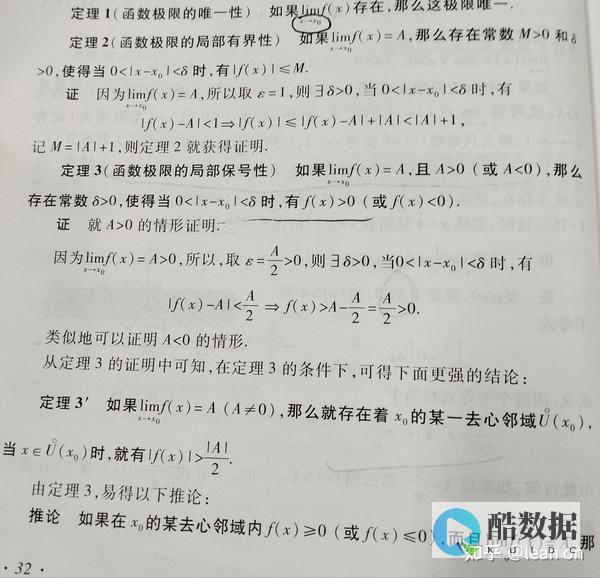 定理1(函数极限的唯一性) 如果lim f(x)存在,那么这极限唯一.
x→x₀
定理2(函数极限的局部有界性) 如果lim f(x)=A,那么存在常数M>0和δ
x→x₀
>0,使得当0<|x-x₀|<δ时,有|f(x)|≤M.
证 因为lim f(x)=A,所以取ε=1,则∃δ>0,当0<|x-x₀|<δ时,有
x→x₀
|f(x)-A|<1⇒|f(x)|≤|f(x)-A|+|A|<|A|+1,
记M=|A|+1,则定理2就获得证明.
定理3(函数极限的局部保号性) 如果lim f(x)=A,且A>0(或A<0),那么
x→x₀
存在常数δ>0,使得当0<|x-x₀|<δ时,有f(x)>0(或f(x)<0).
证 就A>0的情形证明.
因为lim f(x)=A>0,所以,取ε=A/2>0,则∃δ>0,当0<|x-x₀|<δ时,有
x→x₀
|f(x)-A|<A/2⇒f(x)>A-A/2=A/2>0.
类似地可以证明A<0的情形.
从定理3的证明中可知,在定理3的条件下,可得下面更强的结论:
定理3′ 如果lim f(x)=A(A≠0),那么就存在着x₀的某一去心邻域Ů(x₀),
x→x₀
当x∈Ů(x₀)时,就有|f(x)|>|A|/2.
由定理3,易得以下推论:
推论 如果在x₀的某去心邻域内f(x)≥0(或f(x)≤0),而且 那
·32·
酷数据
知乎 @lean cn